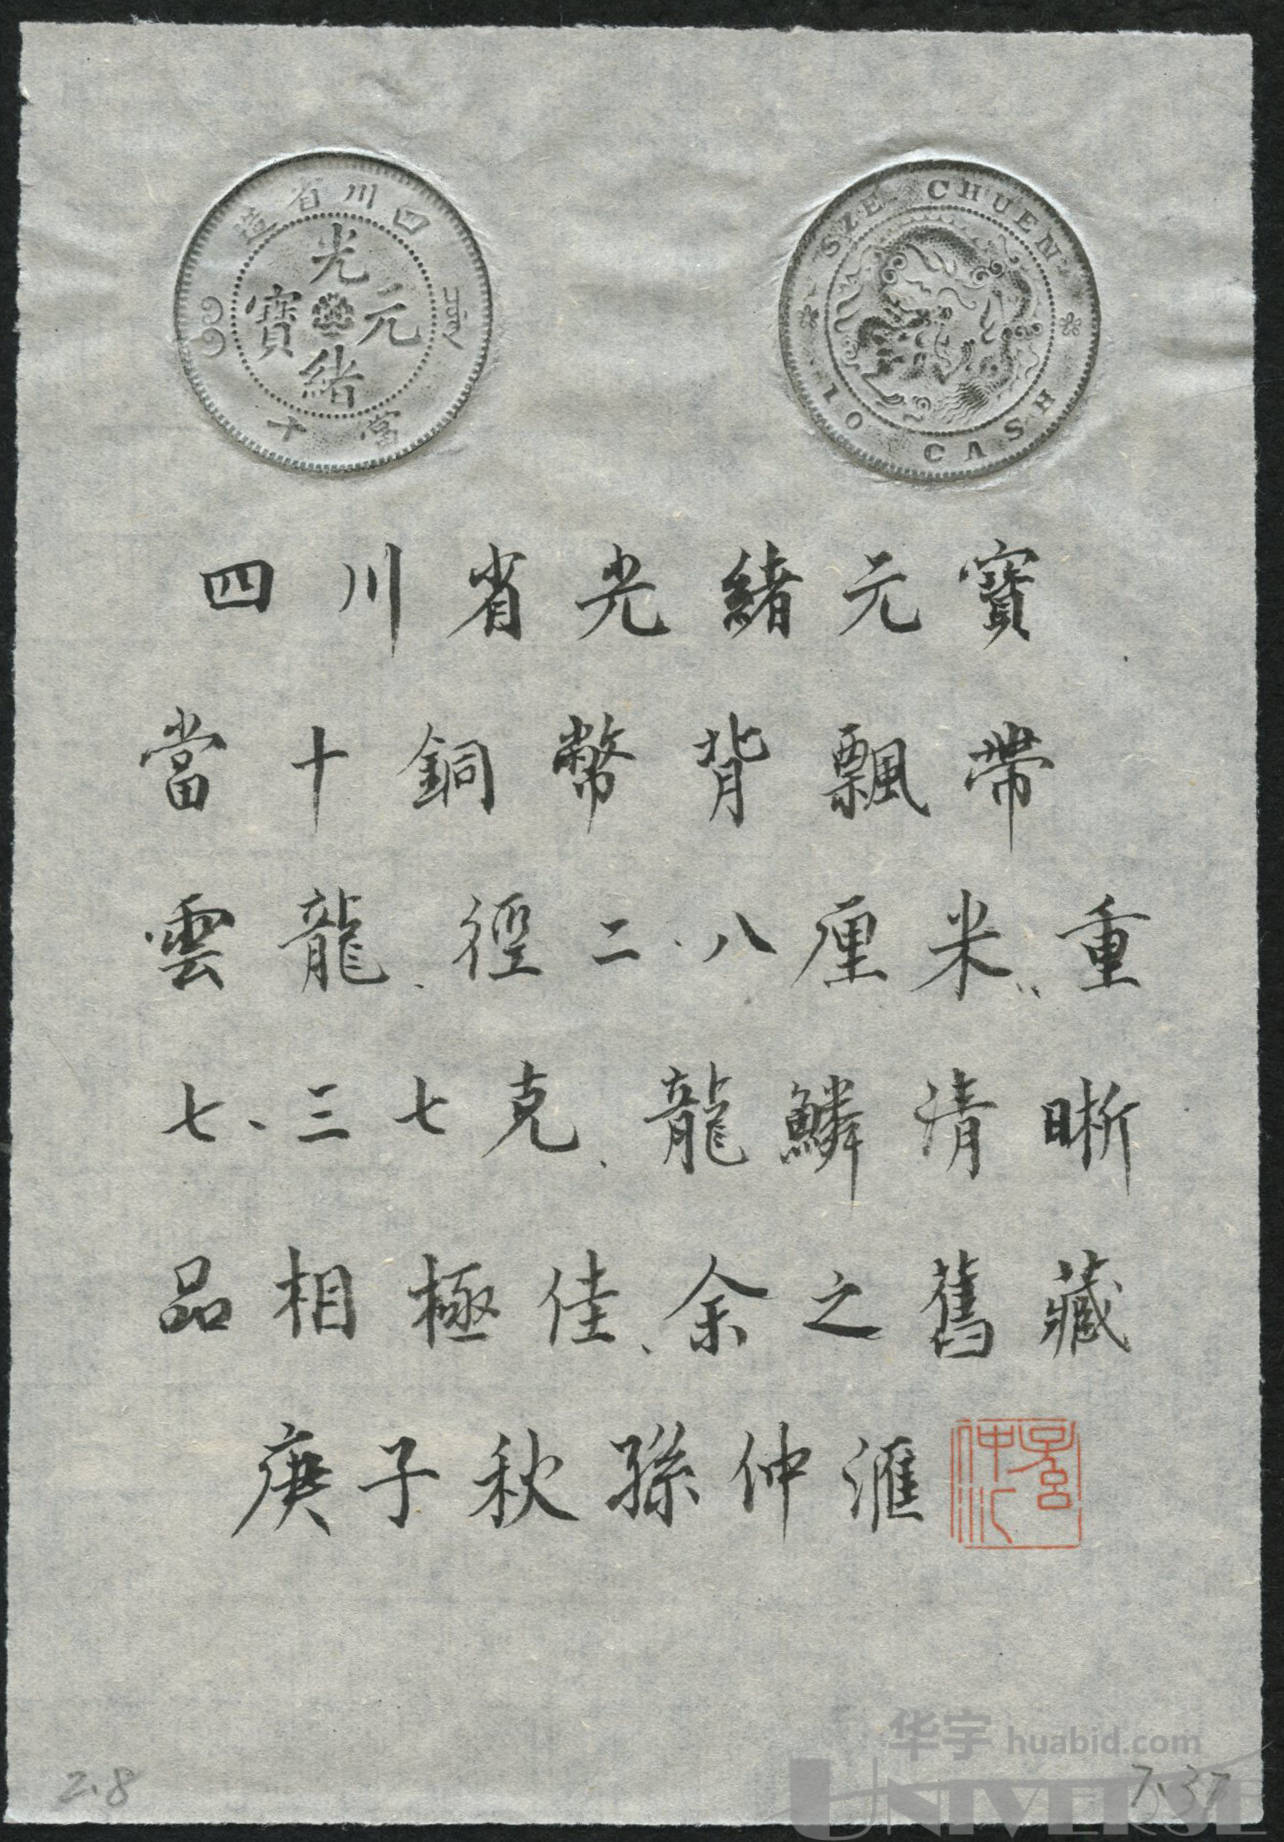 四川省造
光緒元寶
當十
SZE CHUEN
10 CASH
四川省光緒元寶
當十銅幣背飄帶
雲龍、徑二.八厘米、重
七.三七克、龍鱗清晰
品相極佳、余之舊藏
庚子秋孫仲滙
2.8
7.37
华宇 huabid.com
UNIVERSE